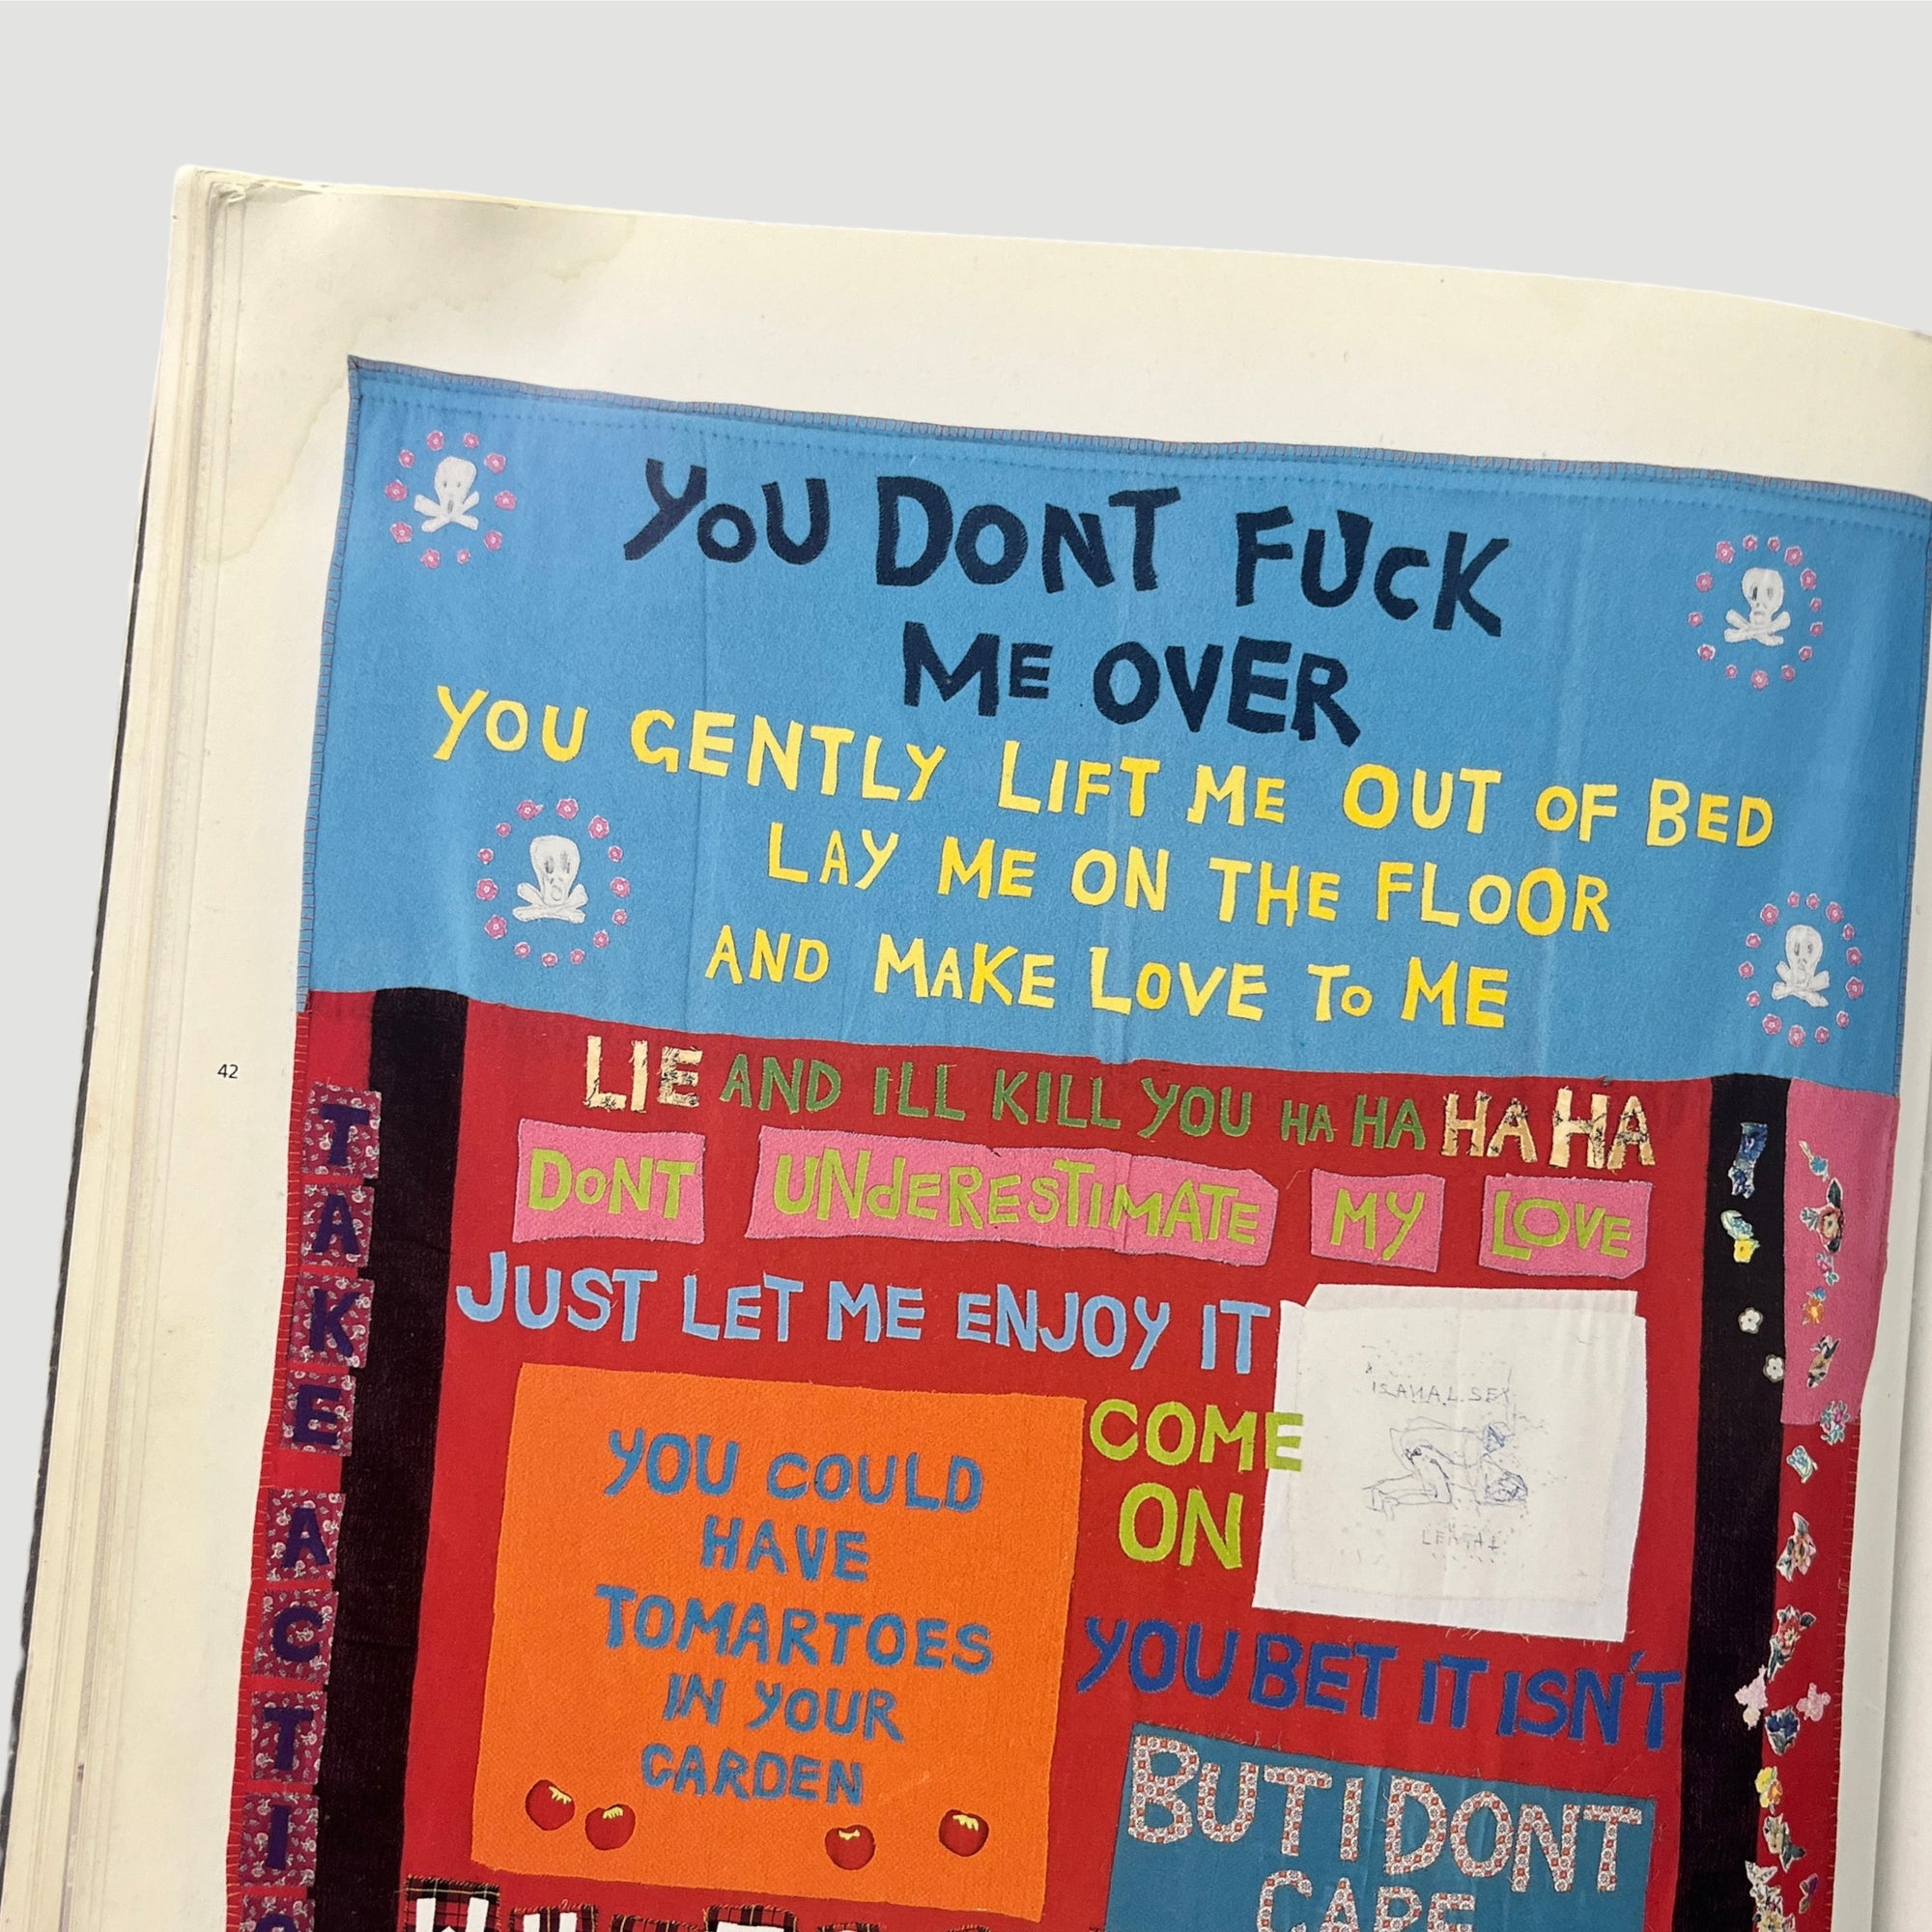 YOU DONT FUCK
ME OVER
YOU GENTLY LIFT ME OUT OF BED
LAY ME ON THE FLOOR
AND MAKE LOVE TO ME
LIE AND ILL KILL YOU HA HA HA HA
DONT UNdERESTIMATE MY LOVE
JUST LET ME ENJOY IT
COME
ON
IS ANAL SEX
LEGAL
YOU COULD
HAVE
TOMARTOES
IN YOUR
GARDEN
YOU BET IT ISN'T
BUT I DONT
CARE
TAKE ACTI
42